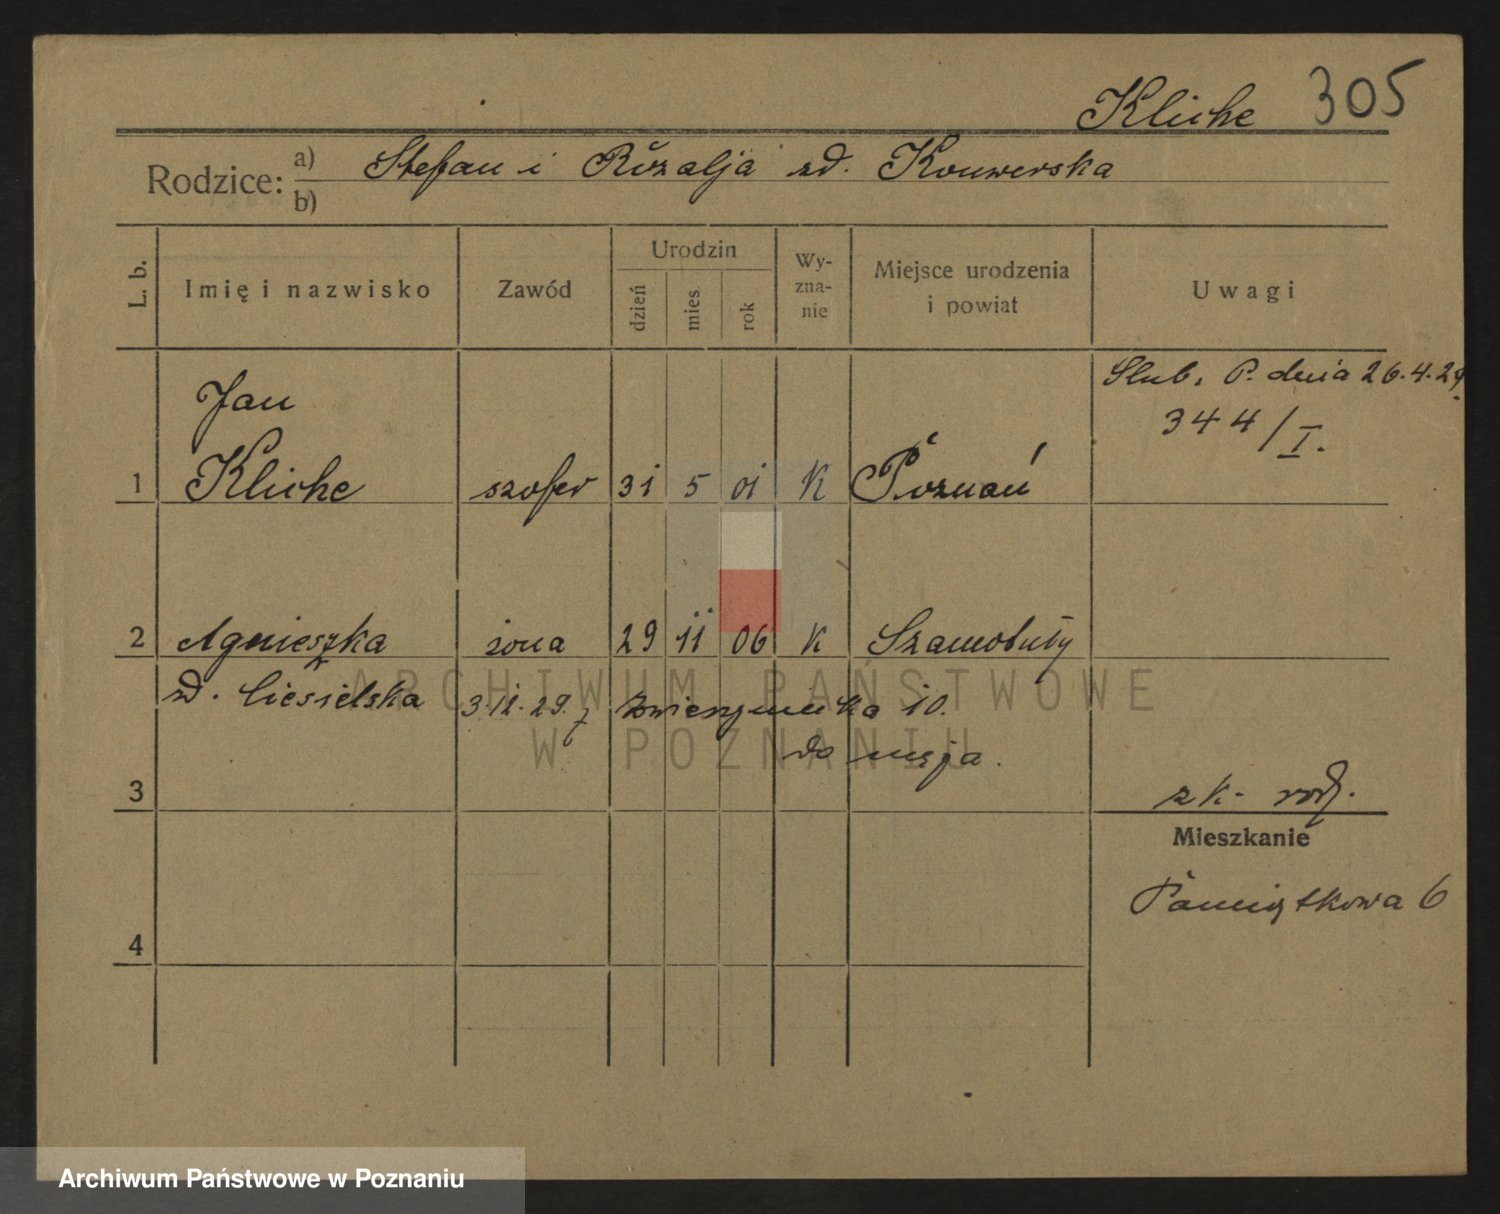 Kliche 305
Rodzice: a) Stefan i Rozalja zd. Konwerska
b)
L. b. Imię i nazwisko Zawód Urodzin dzień mies. rok Wy-zna-nie Miejsce urodzenia i powiat Uwagi
Ślub. P. dnia 26.4.29.
344/I.
Jan
1 Kliche szofer 31 5 01 K Poznań
2 Agnieszka żona 29 11 06 K Szamotuły
zd. Ciesielska 3.12.29. Zwierzyniecka 10.
do męża.
3 zk. rodz.
Mieszkanie
Pamiątkowa 6
4
ARCHIWUM PAŃSTWOWE
W POZNANIU
Archiwum Państwowe w Poznaniu